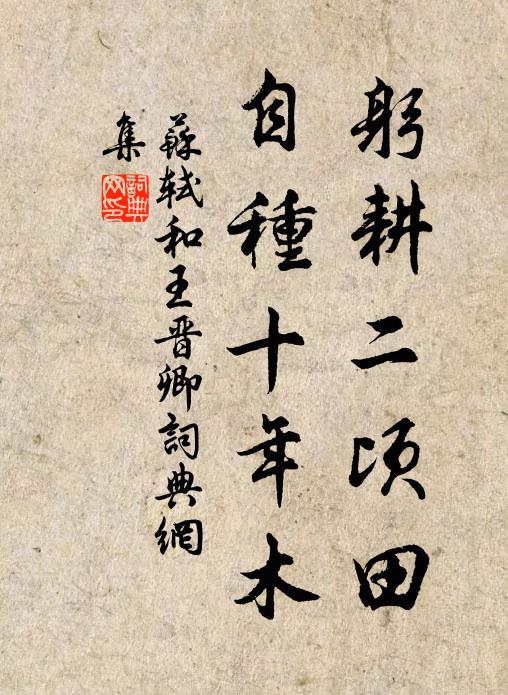 躬耕二頃田
自種十年木
蘇軾和王晋卿詞典網
集
詞典
网印